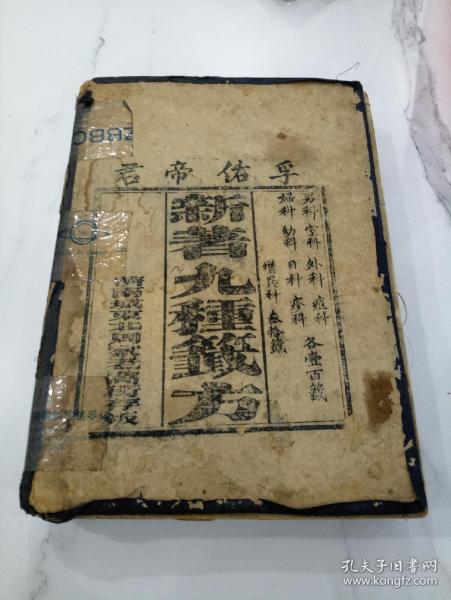 孚佑帝君
男科 室科 外科 痘科
婦科 幼科 目科 疹科 各壹百籤
增 科 叁拾籤
新著九種籤方
濟南城東北周
孔夫子旧书网
www.kongfz.com